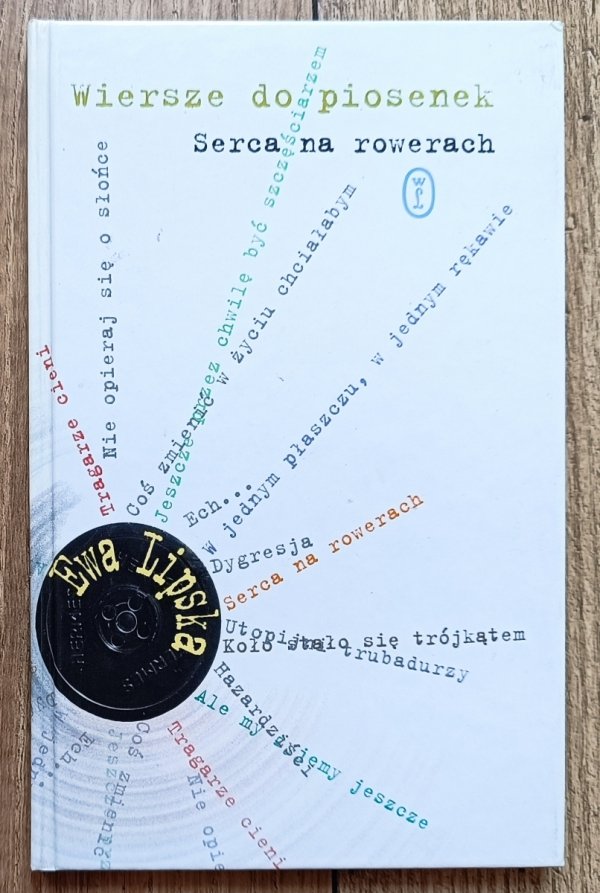 Wiersze do piosenek
Serca na rowerach
WL
Tragarze cieni
Nie opieraj się o słońce
Coś zmienić w życiu chciałabym
Jeszcze przez chwilę być szczęściarzem
Ech...
W jednym płaszczu, w jednym rękawie
Dygresja
Serca na rowerach
Utopijni trubadurzy
Koło stało się trójkątem
Hazardziści
Ale my żyjemy jeszcze
Tragarze cieni
Nie opie
Coś zmienić
Jeszcze
Ech...
W jedn
Ewa Lipska
HERMES